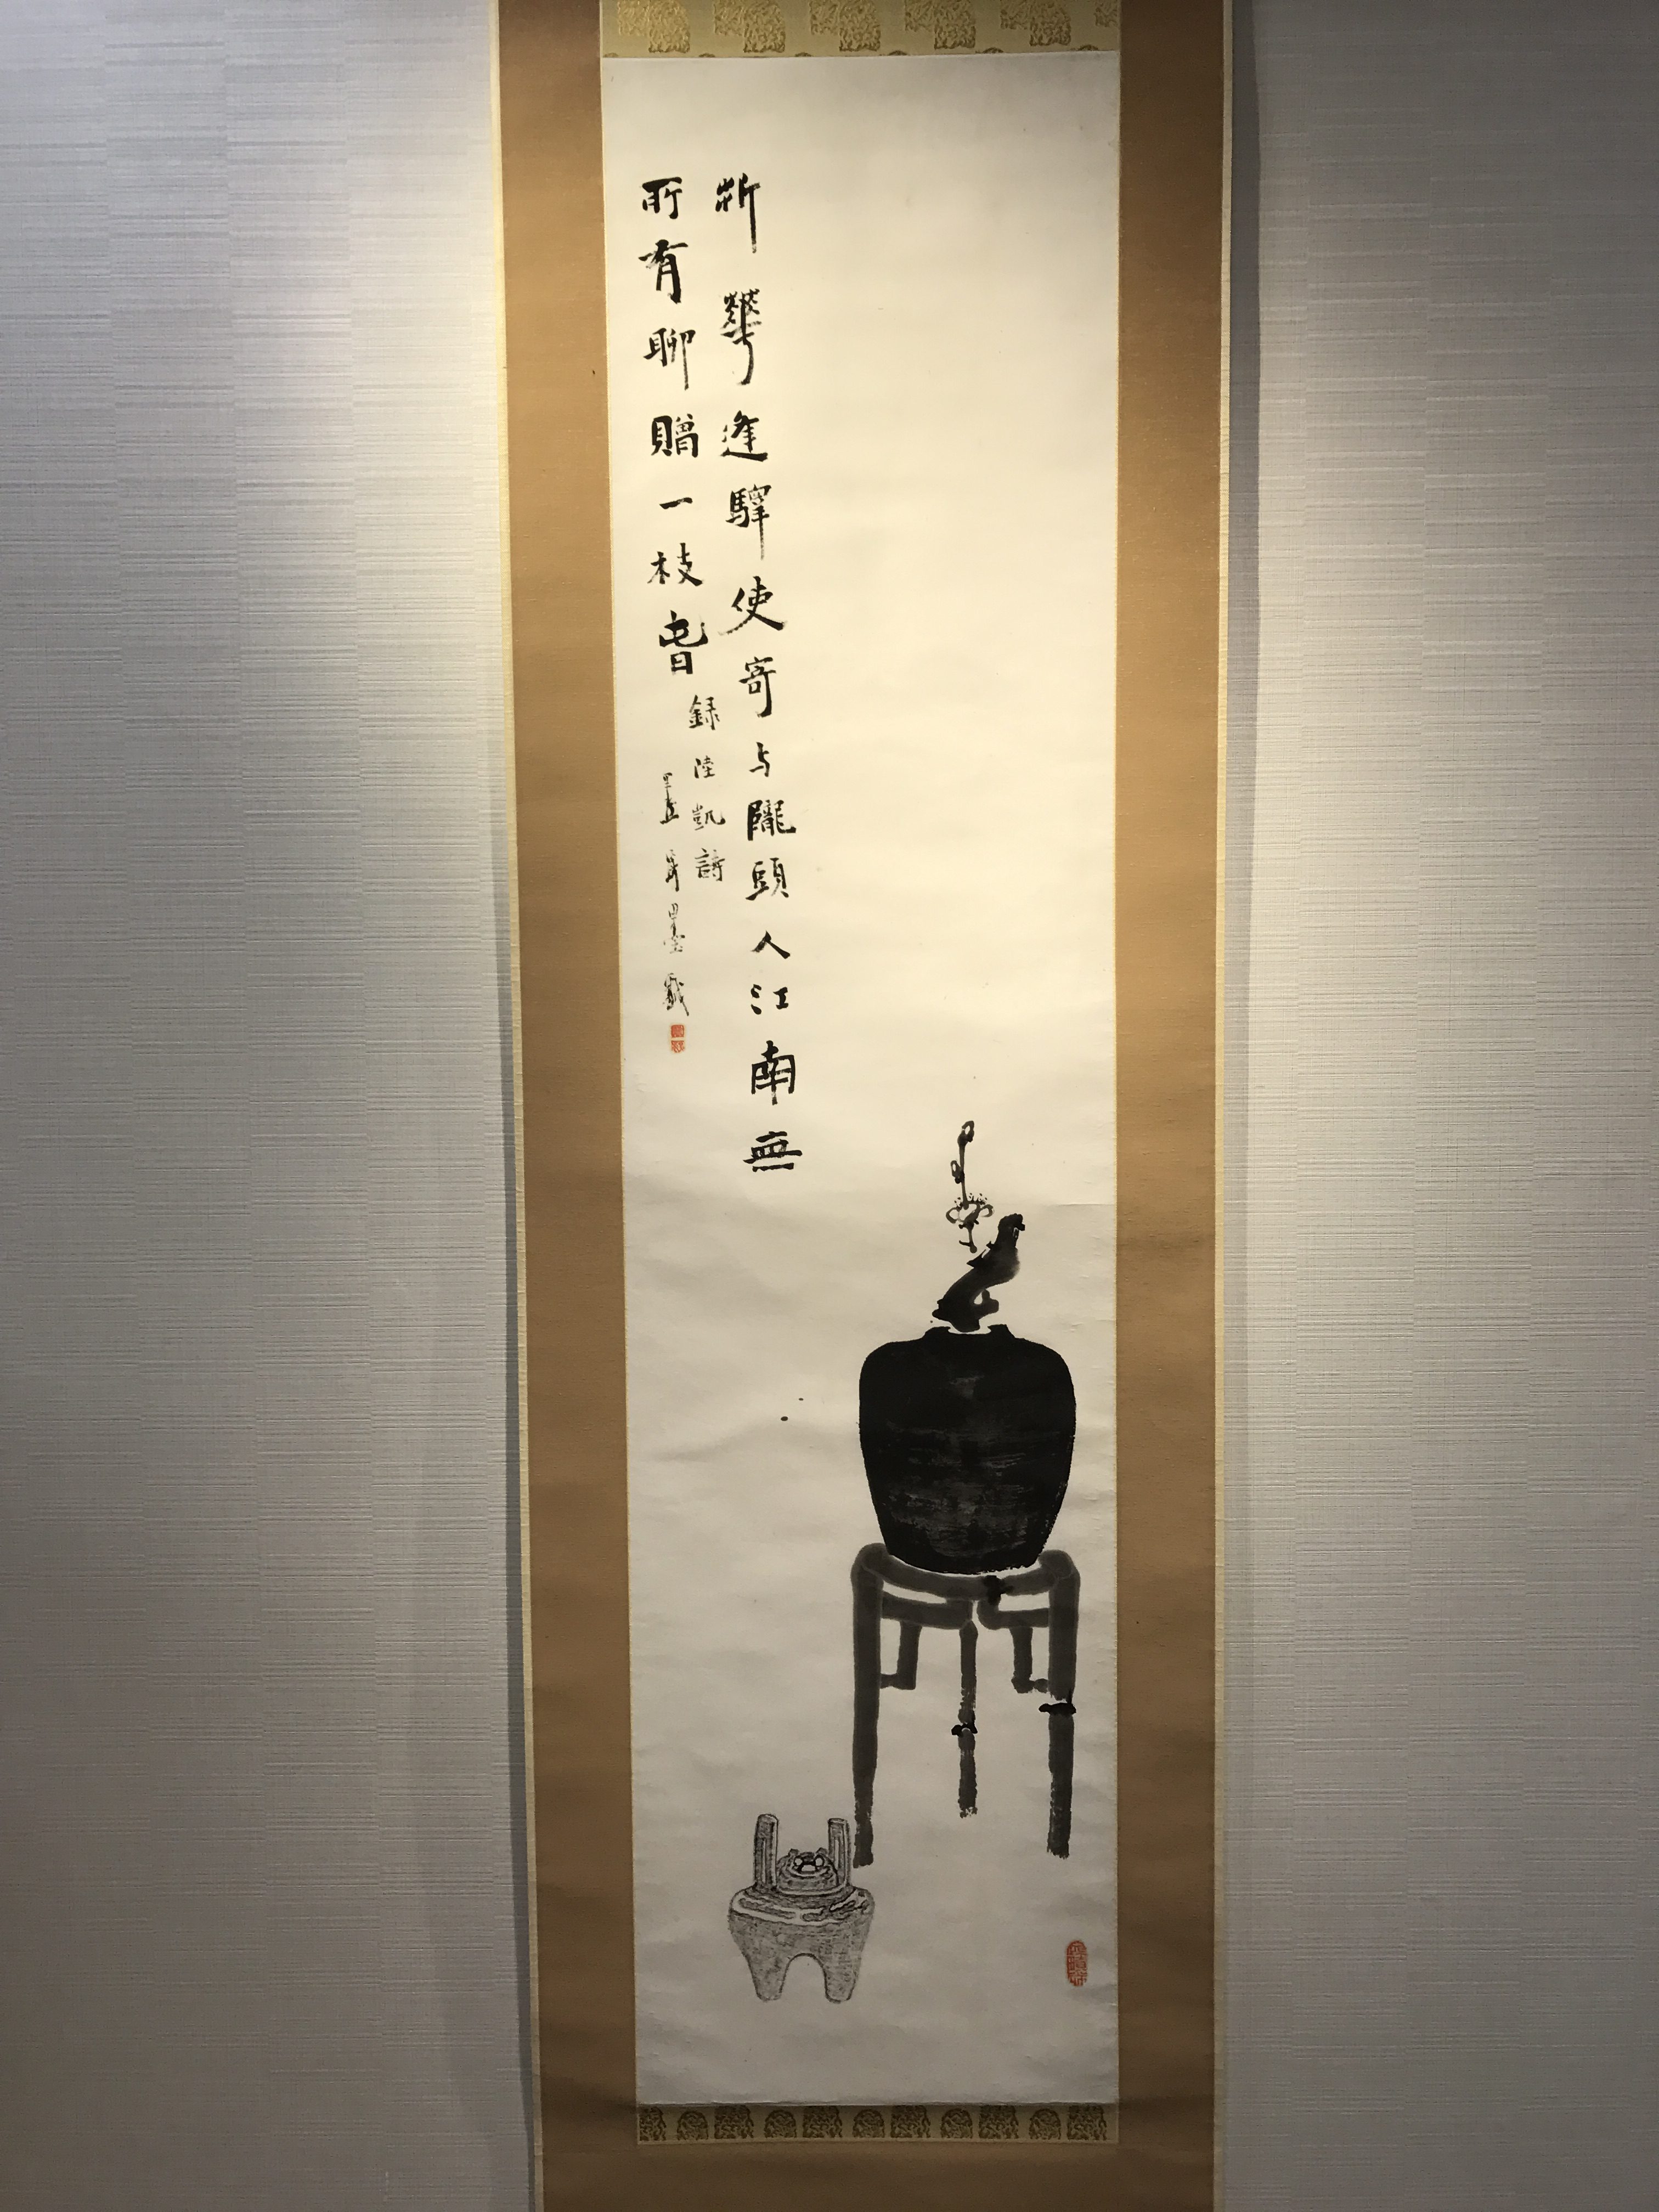 折華逢驛使寄与隴頭人江南無
所有聊贈一枝萅
録陸凱詩
墨戲